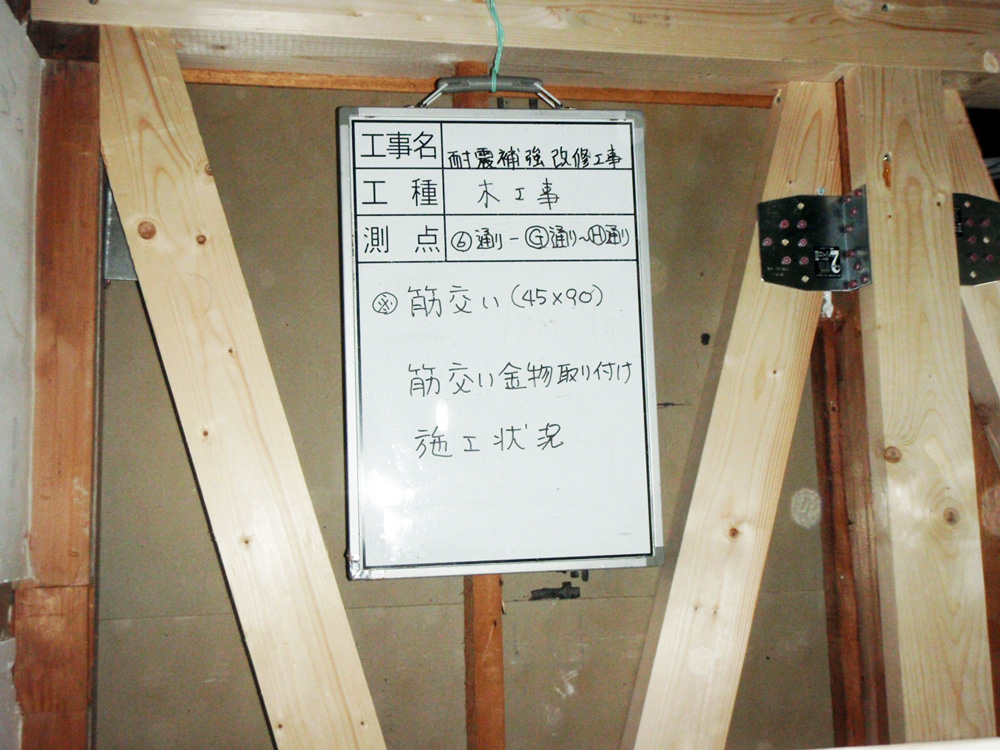 工事名 耐震補強改修工事
工種 木工事
測点 ⑥通り-Ⓖ通り~Ⓗ通り
筋交い(45×90)
筋交い金物取り付け
施工状況